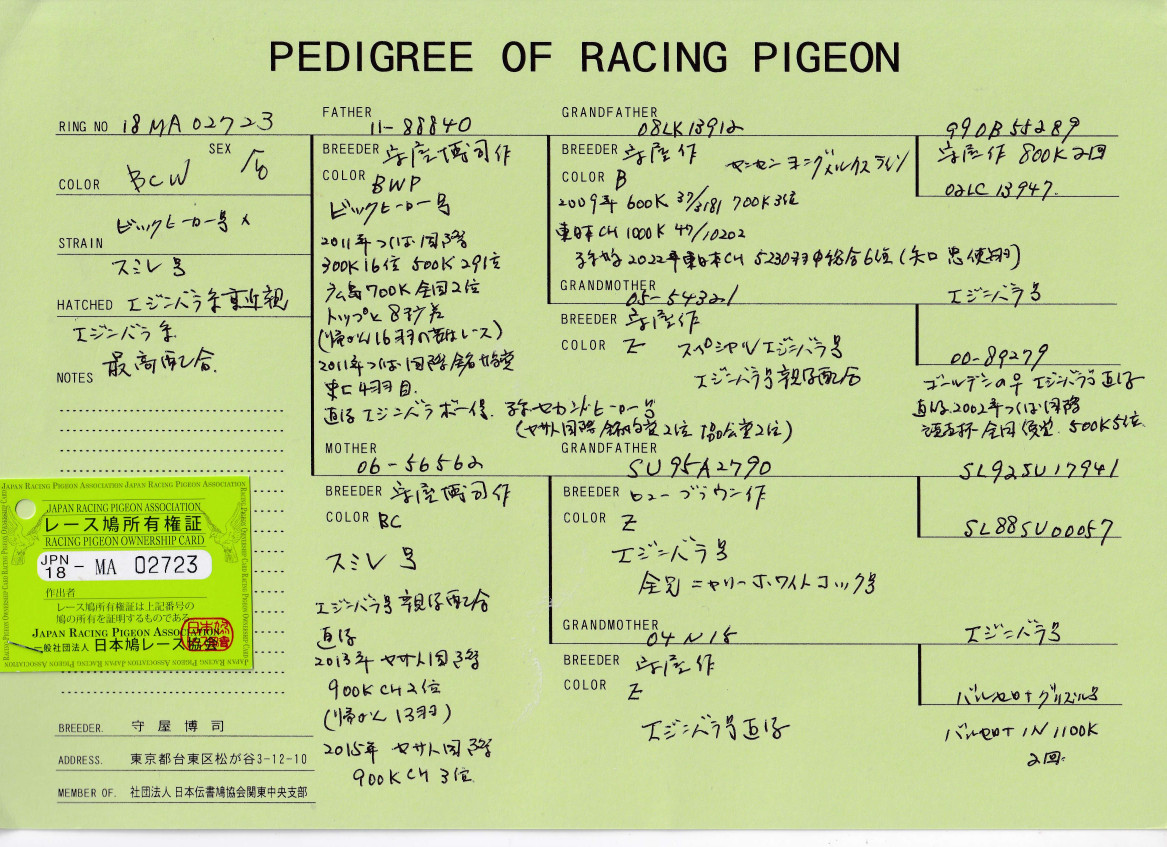 PEDIGREE OF RACING PIGEON
RING NO 18MA 02723
SEX ♂
COLOR BCW
STRAIN ビックヒーロー号 ×
スミレ号
HATCHED エジンバラ系 重近親
NOTES エジンバラ系
最高配合.
JAPAN RACING PIGEON ASSOCIATION
レース鳩所有権証
RACING PIGEON OWNERSHIP CARD
JPN 18 - MA 02723
作出者
レース鳩所有権証は上記番号の
鳩の所有を証明するものである
JAPAN RACING PIGEON ASSOCIATION
一般社団法人 日本鳩レース協会
BREEDER. 守屋 博司
ADDRESS. 東京都台東区松が谷3-12-10
MEMBER OF. 社団法人 日本伝書鳩協会関東中央支部
FATHER
11-88840
BREEDER 守屋博司作
COLOR BWP
ビックヒーロー号
2011年つくば国際
300K16位 500K29位
広島700K全国2位
トップと8秒差
(帰かん16羽の
レース)
2011年つくば国際
4羽目.
直仔 エジンバラボーイ号. セカンドヒーロー号
(ヤサト国際 2位 協会賞2位)
MOTHER
06-56562
BREEDER 守屋博司作
COLOR BC
スミレ号
エジンバラ号親仔配合
直仔
2013年 ヤサト国際
900KCH2位
(帰かん 13羽)
2015年 ヤサト国際
900KCH 3位
GRANDFATHER
08LK13912
BREEDER 守屋作 ヤンセン ヨングメルクスライン
COLOR B
2009年 600K 37/3181 700K3位
東日本CH 1000K 47/10202
2022年東日本CH 5230羽中総合6位 (矢口 忠 使翔)
GRANDMOTHER
05-54321
BREEDER 守屋作
COLOR Z スペシャルエジンバラ号
エジンバラ号親仔配合
GRANDFATHER
SU95A2790
BREEDER ヒューブラウン作
COLOR Z
エジンバラ号
全兄 ニャリーホワイトコック号
GRANDMOTHER
04N15
BREEDER 守屋作
COLOR Z
エジンバラ号直仔
99DB55289
守屋作 800K2回
02LC13947.
エジンバラ号
00-89279
ゴールデンの孕 エジンバラ号直仔
直仔.2002年つくば国際
全国優勝. 500K5位.
SL92SU17941
SL88SU00057
エジンバラ号
バルセロナグリズル号
バルセロナ IN 1100K
2回.